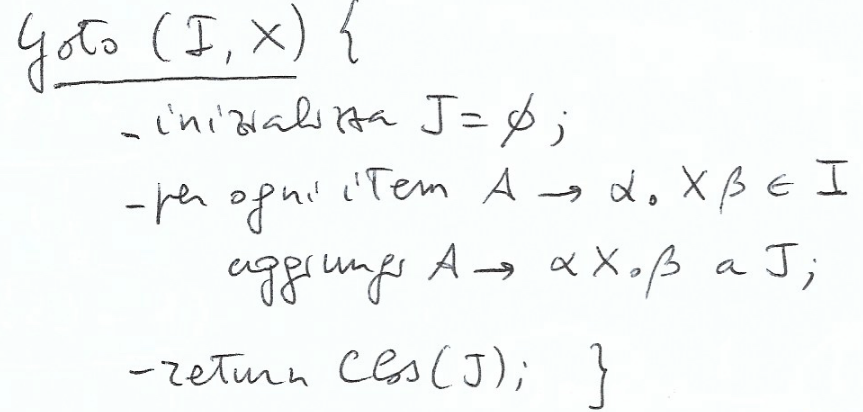 Goto (I, X) {
- inizializza J = ∅;
- per ogni item A → α . X β ∈ I
aggiungi A → α X . β a J;
- return Clos(J); }